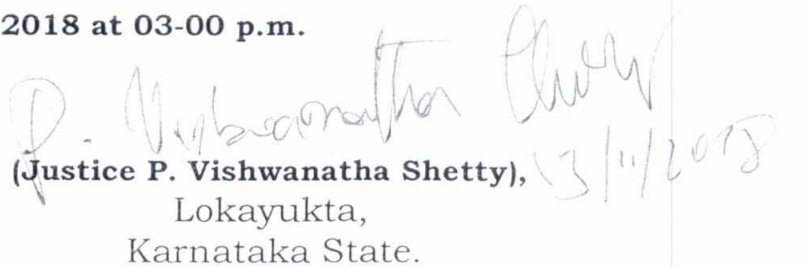 2018 at 03-00 p.m.
P. Vishwanatha Shetty
(Justice P. Vishwanatha Shetty), 13/11/2018
Lokayukta,
Karnataka State.